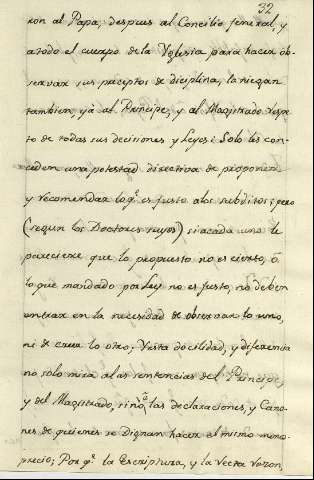 32
ron al Papa, despues al Concilio general, y
a todo el cuerpo de la Yglesia para hacer ob-
servar sus preceptos de diciplina, la niegan
tambien, yà al Principe, y al Magistrado respe-
to de todas sus deciciones y Leyes: Solo les con-
ceden una potestad directiva de proponer
y recomendar loq.^e es justo a los subditos; pero
(segun los Doctores suyos) si acada uno le
pareciere que lo propuesto no es cierto, ó
lo que mandado por Ley no es justo, no deben
entrar en la necesidad de observar lo uno,
ni de creer lo otro; Y esta docilidad, y diferencia
no solo mira a las sentencias del Principe,
y del Magistrado, sinó à las declaraciones, y Cano-
nes de quienes se Dignan hacer el mismo meno-
precio; Por q.^e la Escriptura, y la recta razon,